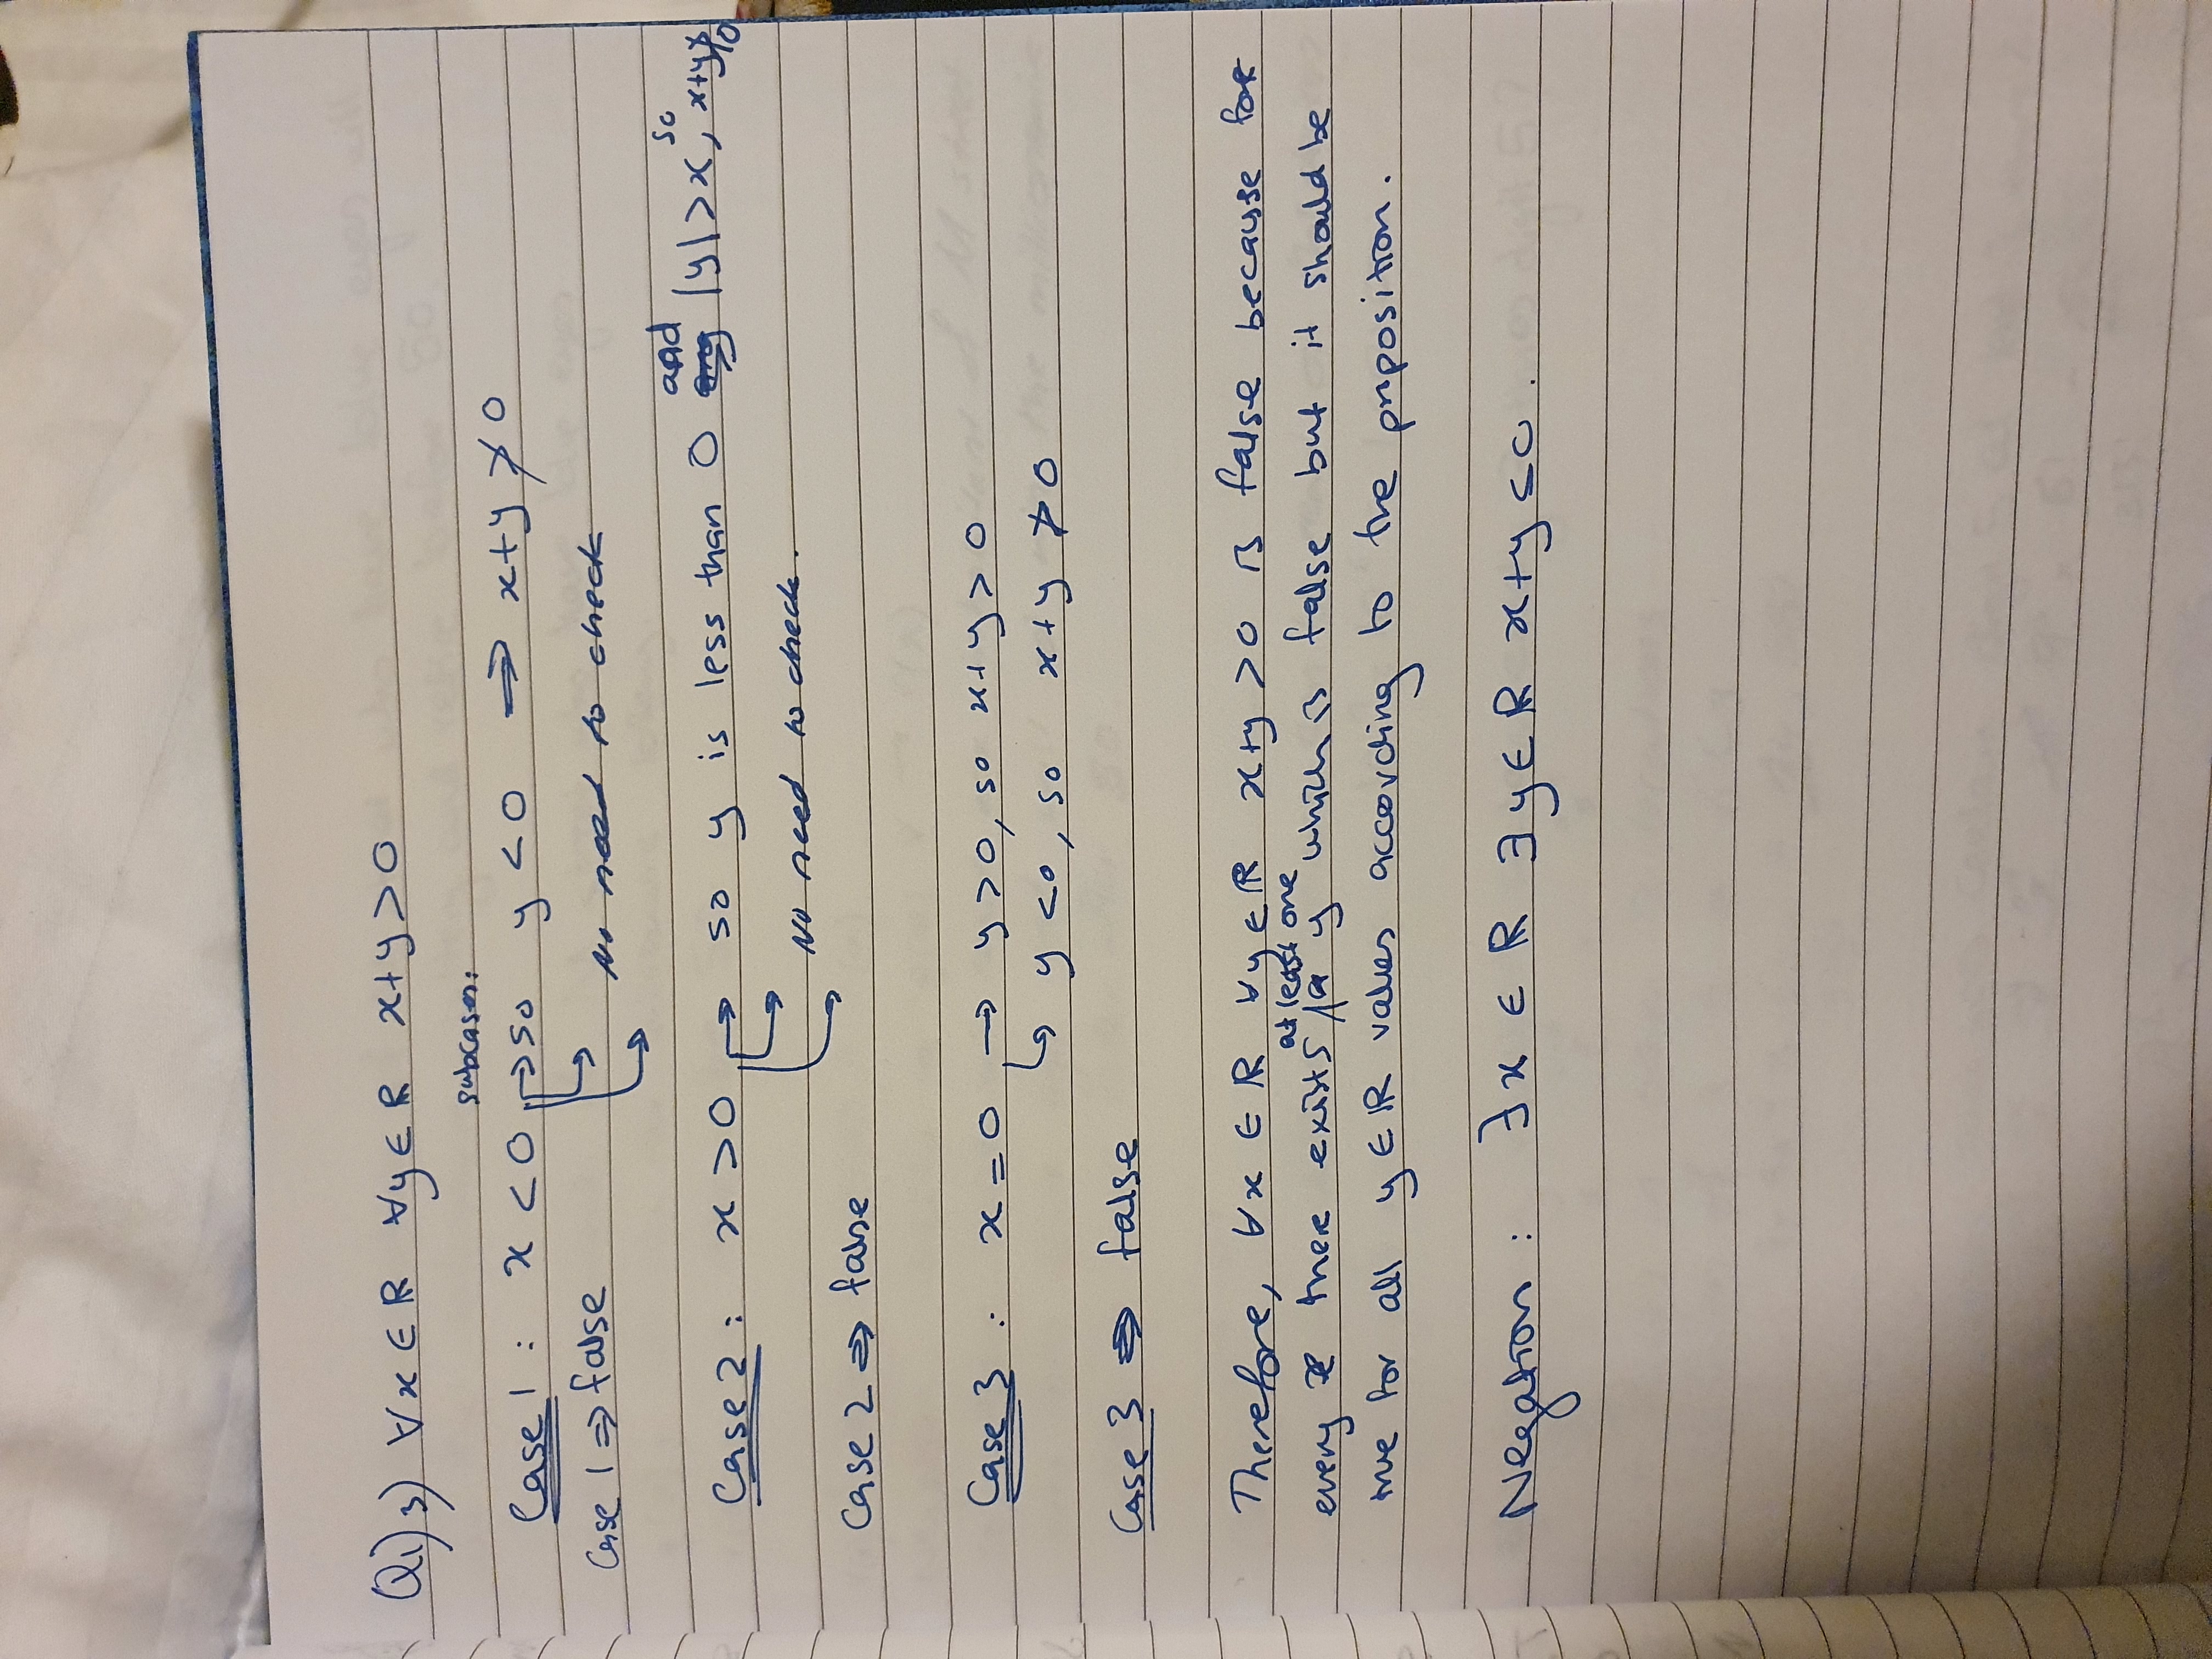 Q1) 3) ∀x ∈ ℝ ∀y ∈ ℝ x+y > 0
subcases:
Case 1 : x < 0 → so y < 0 ⇒ x+y ≯ 0
No need to check
Case 1 ⇒ false
Case 2 : x > 0 → so y is less than 0 and |y| > x, so x+y ≯ 0
No need to check.
Case 2 ⇒ false
Case 3 : x = 0 → y > 0, so x+y > 0
↳ y < 0, so x+y ≯ 0
Case 3 ⇒ false
Therefore, ∀x ∈ ℝ ∀y ∈ ℝ x+y > 0 is false because for
every x there exists at least one y which is false but it should be
true for all y ∈ ℝ values according to the proposition.
Negation : ∃x ∈ ℝ ∃y ∈ ℝ x+y ≤ 0.